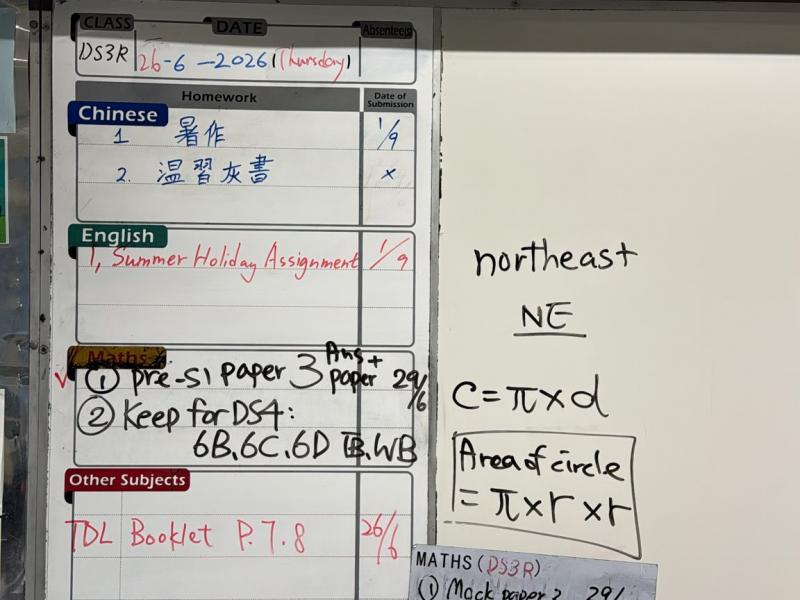 CLASS DATE Absentee(s)
DS3R 26-6-2026 (Thursday)
Homework Date of Submission
Chinese
1 暑作 1/9
2. 温習灰書 x
English
1, Summer Holiday Assignment 1/9
Maths
① pre-S1 paper 3 Ans + paper 29/6
② Keep for DS4:
6B, 6C, 6D TB, WB
Other Subjects
TDL Booklet P.7.8 26/6
northeast
NE
C=π×d
Area of circle
=π×r×r
MATHS (DS3R)
① Mock paper 2 29/